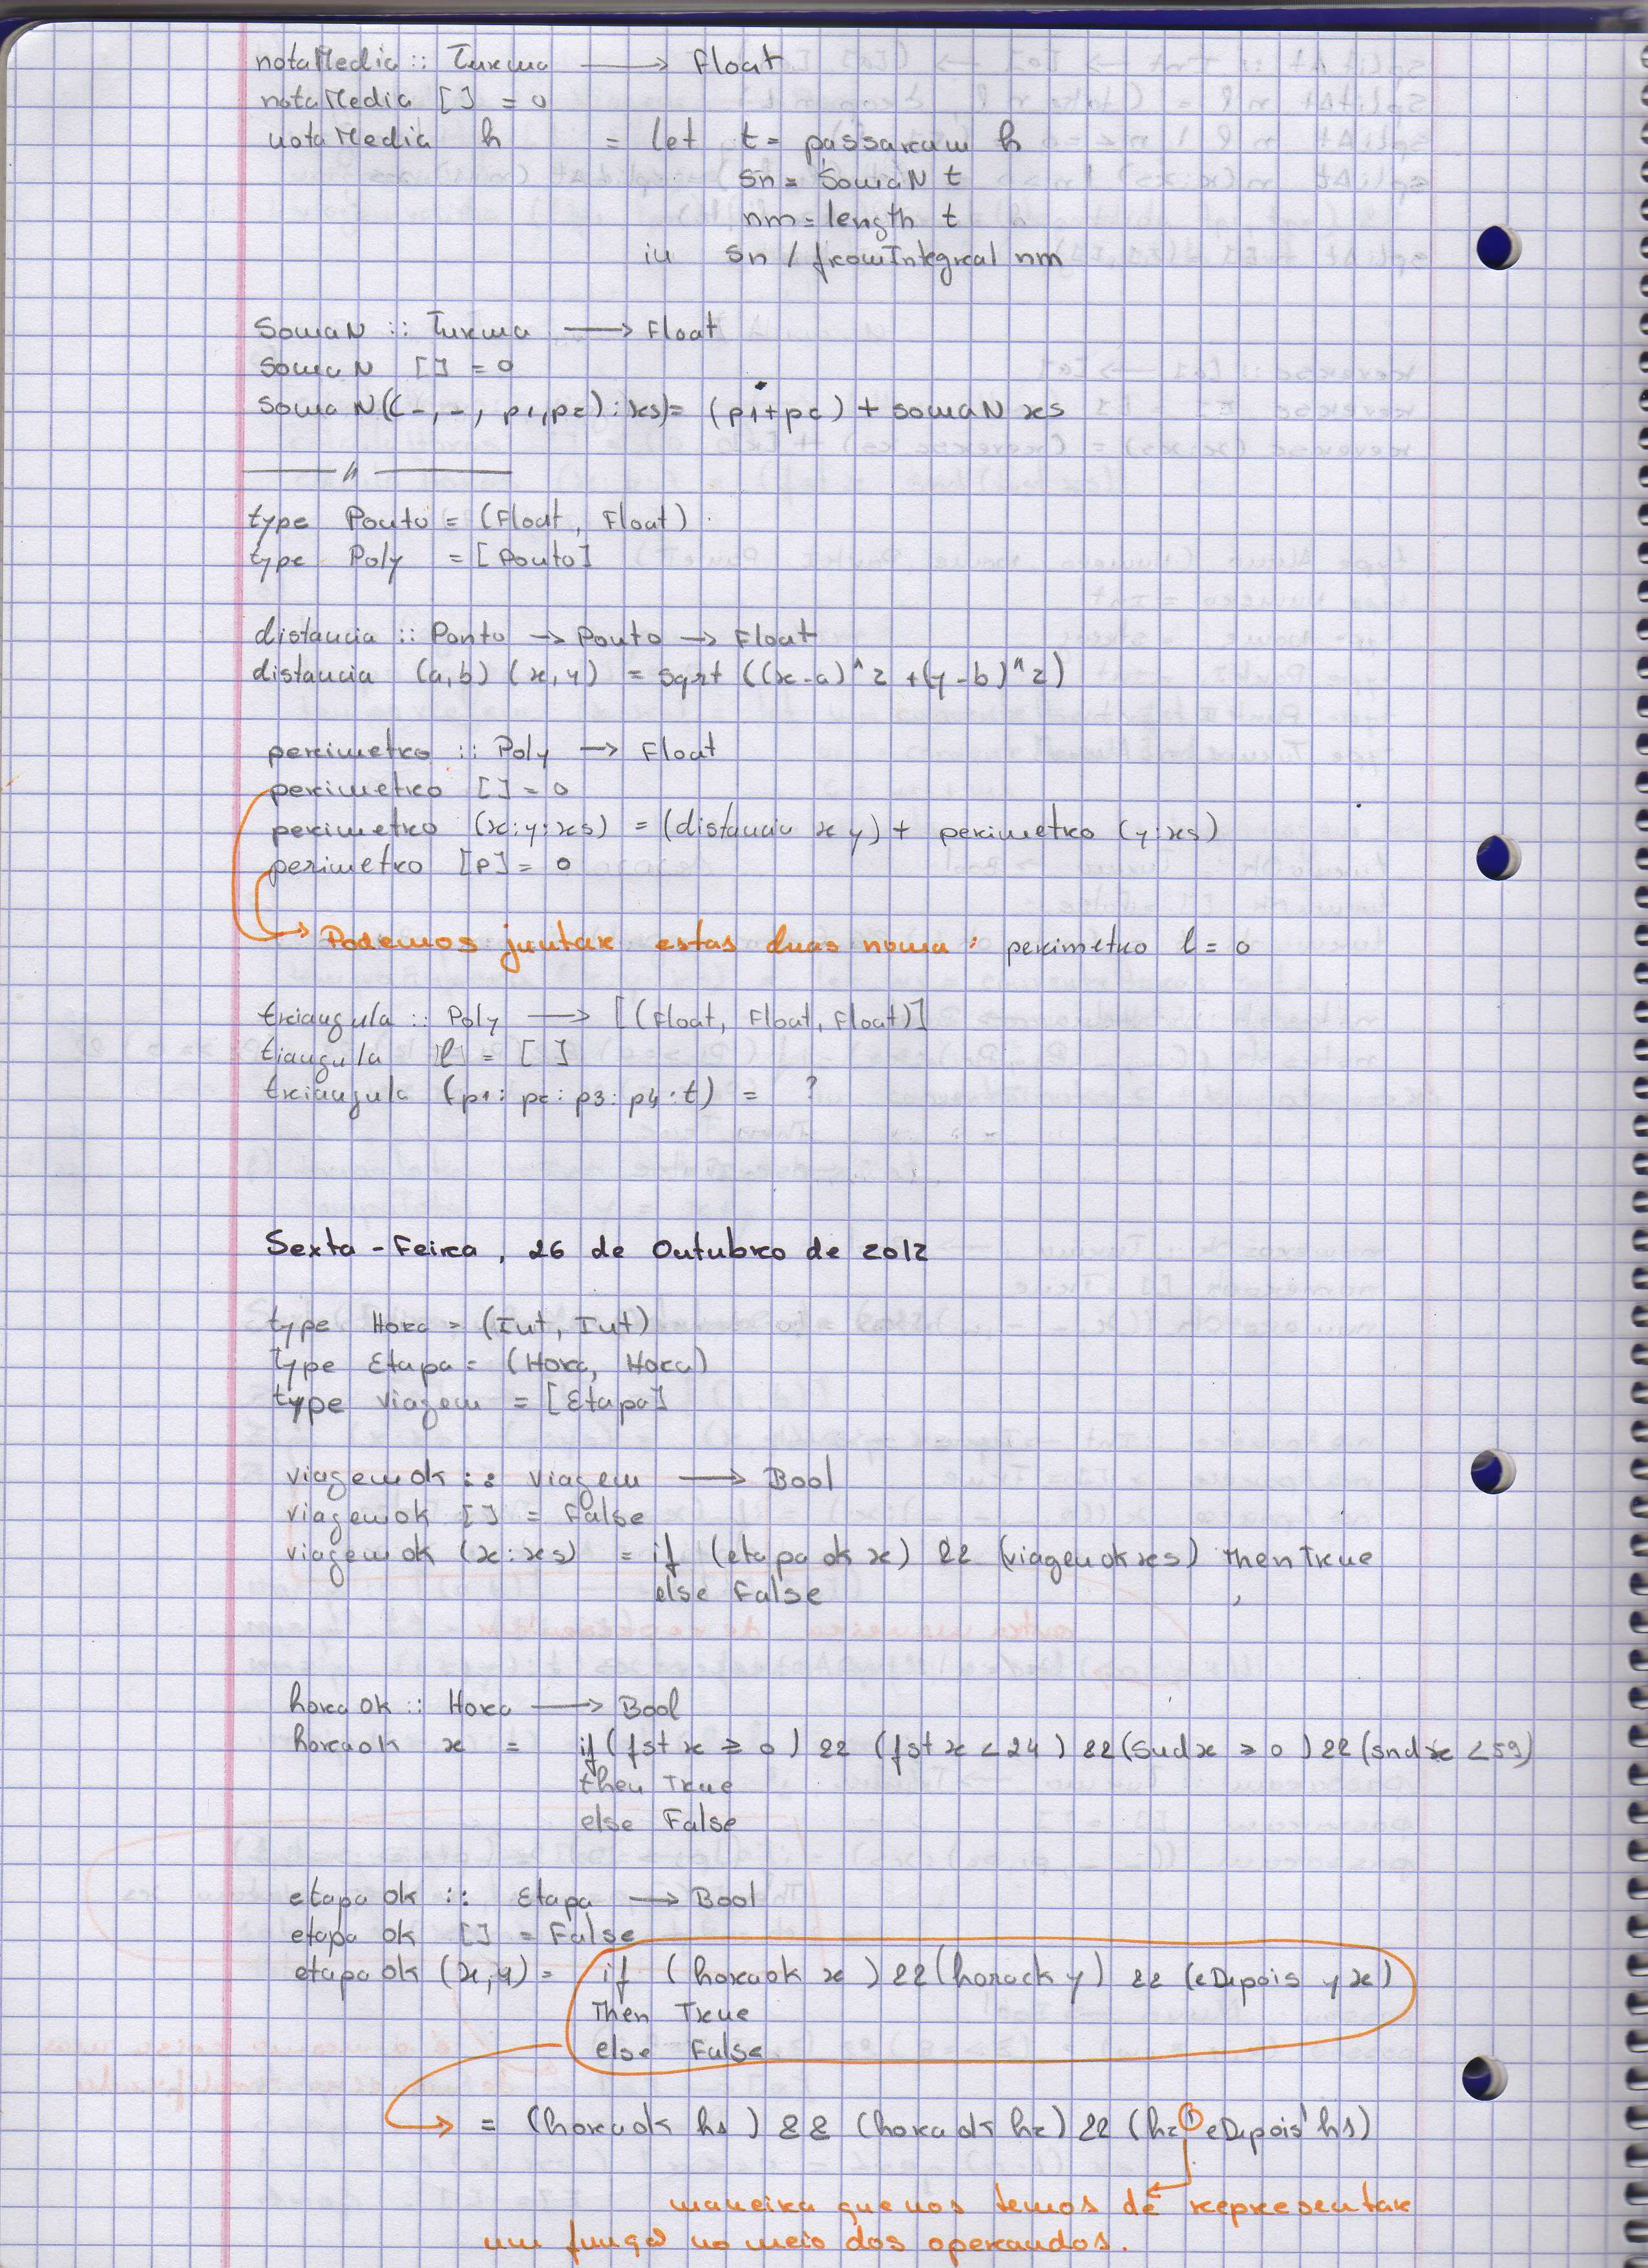 notaMedia :: Turma ⟶ Float
notaMedia [ ] = 0
notaMedia h = let t = passaram h
sn = SomaN t
nm = length t
in sn / fromIntegral nm
SomaN :: Turma ⟶ Float
SomaN [ ] = 0
somaN((-, -, p1,p2) : xs) = (p1+p2) + somaN xs
—— // ——
type Ponto = (Float, Float)
type Poly = [Ponto]
distancia :: Ponto → Ponto → Float
distancia (a,b) (x,y) = sqrt ((x-a)^2 + (y-b)^2)
perimetro :: Poly → Float
perimetro [] = 0
perimetro (x:y:xs) = (distancia x y) + perimetro (y:xs)
perimetro [P] = 0
Podemos juntar estas duas numa : perimetro l = 0
triangula :: Poly ⟶ [(Float, Float, Float)]
tiangula l = [ ]
triangula (p1: p2: p3: p4: t) = ?
Sexta-Feira, 26 de Outubro de 2012
type Hora = (Int, Int)
type Etapa = (Hora, Hora)
type viagem = [Etapa]
viagemok :: viagem ⟶ Bool
viagemok [] = False
viagemok (x:xs) = if (etapaok x) && (viagemok xs) then True
else False
horaok :: Hora ⟶ Bool
horaok x = if (fst x ≥ 0) && (fst x < 24) && (snd x ≥ 0) && (snd x < 59)
then True
else False
etapaok :: Etapa ⟶ Bool
etapaok [] = False
etapaok (x,y) = if (horaok x) && (horaok y) && (eDepois y x)
Then True
else False
= (horaok h1) && (horaok h2) && (h2 'eDepois' h1)
maneira que nos temos de representar
um função no meio dos operandos.